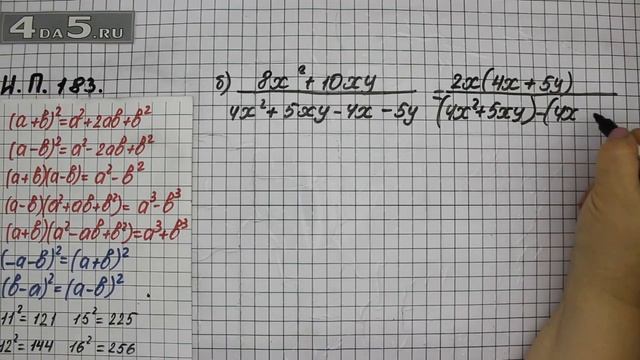 4DA5.RU
И. П. 183.
(a+b)²=a²+2ab+b²
(a-b)²=a²-2ab+b²
(a+b)(a-b)=a²-b²
(a-b)(a²+ab+b²)=a³-b³
(a+b)(a²-ab+b²)=a³+b³
(-a-b)²=(a+b)²
(b-a)²=(a-b)²
11²=121 15²=225
12²=144 16²=256
б) 8x²+10xy / 4x²+5xy-4x-5y = 2x(4x+5y) / (4x²+5xy)-(4x